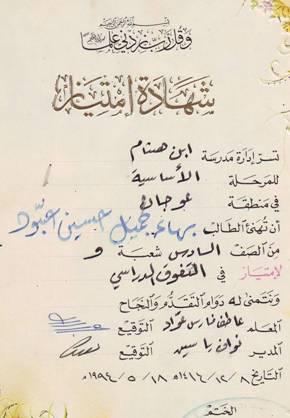 بسم الله الرحمن الرحيم
وقل رب زدني علما
شهادة امتياز
تسر إدارة مدرسة ابن هشام
للمرحلة الأساسية
في منطقة عوجان
أن تهنئ الطالب بهاء جميل حسين عبود
من الصف السادس شعبة و
لإمتياز في التفوق الدراسي
ونتمنى له دوام التقدم والنجاح
المعلم عاطف فارس عواد التوقيع
المدير نواف ياسين التوقيع
التاريخ ٨/١٢/١٤١٤هـ ١٨/٥/١٩٩٤م
الختم